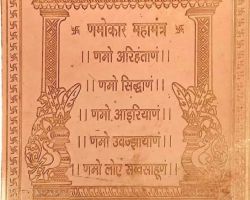 卐 णमोकार महामंत्र 卐
।। णमो अरिहंताणं ।।
।। णमो सिद्धाणं ।।
।। णमो आइरियाणं ।।
।। णमो उवज्झायाणं ।।
।। णमो लोए सव्वसाहूणं ।।